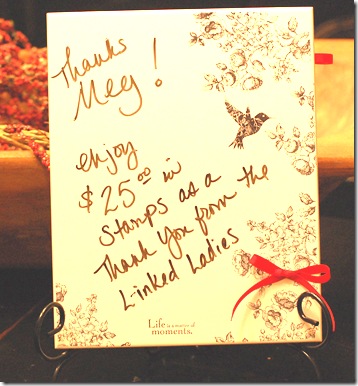 Thanks
Meg!
enjoy
$25.00 in
Stamps as a
Thank You from the
L-inked Ladies
Life is a matter of
moments.